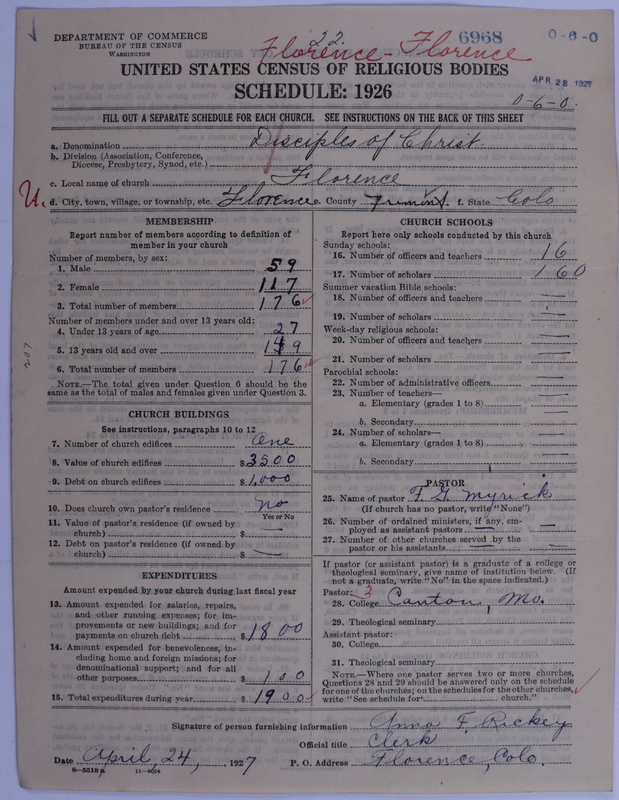 DEPARTMENT OF COMMERCE
BUREAU OF THE CENSUS
WASHINGTON
22.
6968
0-6-0
Florence - Florence
UNITED STATES CENSUS OF RELIGIOUS BODIES
SCHEDULE: 1926
APR 28 1927
0-6-0.
FILL OUT A SEPARATE SCHEDULE FOR EACH CHURCH. SEE INSTRUCTIONS ON THE BACK OF THIS SHEET
a. Denomination Disciples of Christ
b. Division (Association, Conference, Diocese, Presbytery, Synod, etc.)
c. Local name of church Florence
U. d. City, town, village, or township, etc. Florence County Fremont f. State Colo
MEMBERSHIP
Report number of members according to definition of member in your church
Number of members, by sex:
1. Male 59
2. Female 117
3. Total number of members 176
Number of members under and over 13 years old:
4. Under 13 years of age 27
5. 13 years old and over 149
6. Total number of members 176
NOTE.—The total given under Question 6 should be the same as the total of males and females given under Question 3.
CHURCH BUILDINGS
See instructions, paragraphs 10 to 12
7. Number of church edifices One
8. Value of church edifices $3500
9. Debt on church edifices $1,000
10. Does church own pastor's residence no
Yes or No
11. Value of pastor's residence (if owned by church) $ —
12. Debt on pastor's residence (if owned by church) $ —
EXPENDITURES
Amount expended by your church during last fiscal year
13. Amount expended for salaries, repairs, and other running expenses; for improvements or new buildings; and for payments on church debt $1800
14. Amount expended for benevolences, including home and foreign missions; for denominational support; and for all other purposes $100
15. Total expenditures during year $1900
CHURCH SCHOOLS
Report here only schools conducted by this church
Sunday schools:
16. Number of officers and teachers 16
17. Number of scholars 160
Summer vacation Bible schools:
18. Number of officers and teachers —
19. Number of scholars —
Week-day religious schools:
20. Number of officers and teachers —
21. Number of scholars —
Parochial schools:
22. Number of administrative officers —
23. Number of teachers—
a. Elementary (grades 1 to 8) —
b. Secondary —
24. Number of scholars—
a. Elementary (grades 1 to 8) —
b. Secondary —
PASTOR
25. Name of pastor F. G. Myrick
(If church has no pastor, write "None")
26. Number of ordained ministers, if any, employed as assistant pastors —
27. Number of other churches served by the pastor or his assistants —
If pastor (or assistant pastor) is a graduate of a college or theological seminary, give name of institution below. (If not a graduate, write "No" in the space indicated.)
Pastor: 3
28. College Canton, Mo.
29. Theological seminary
Assistant pastor:
30. College
31. Theological seminary
NOTE.—Where one pastor serves two or more churches, Questions 28 and 29 should be answered only on the schedule for one of the churches; on the schedules for the other churches, write "See schedule for church."
Signature of person furnishing information Anna F. Rickey
Official title Clerk
Date April, 24, 1927 P. O. Address Florence, Colo.
8-5518a 11-9064